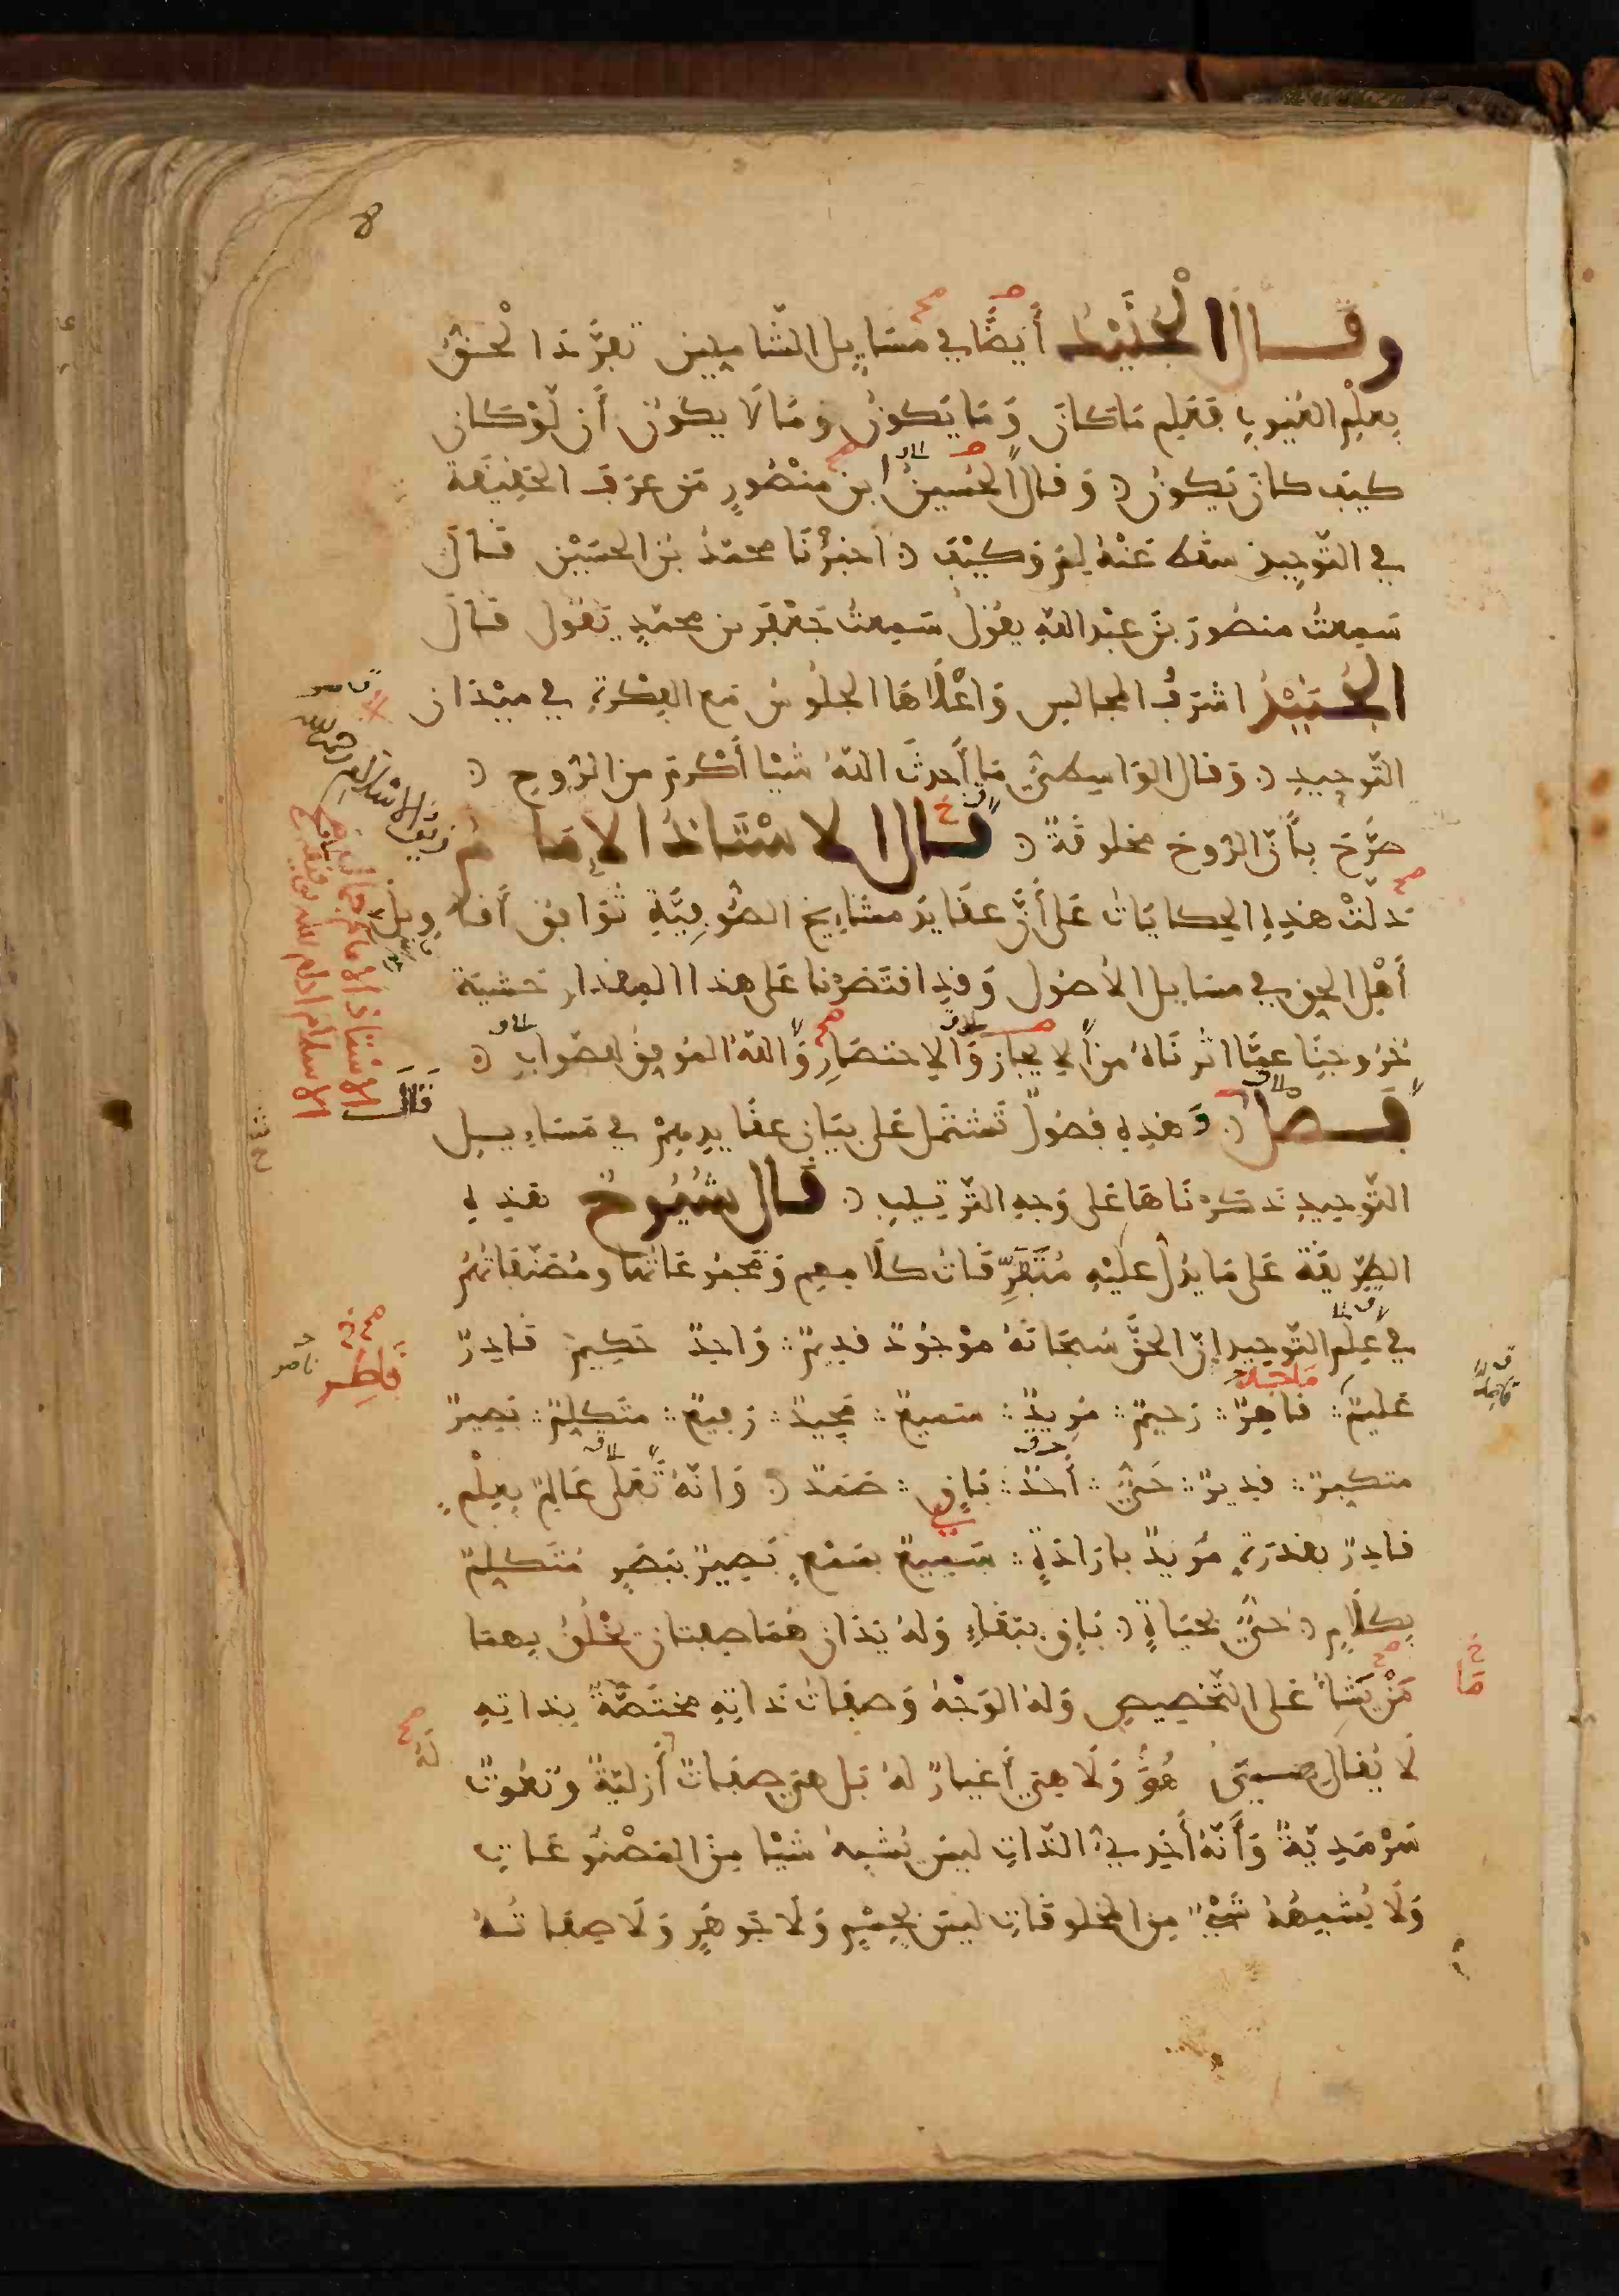 8
وقال الجنيد أيضا في مسايل الشاميين تفرد الحق
بعلم الغيوب فعلم ما كان وما يكون وما لا يكون أن لو كان
كيف كان يكون وقال الحسين ابن منصور من عرف الحقيقة
في التوحيد سقط عنه لم وكيف اخبرنا محمد بن الحسين قال
سمعت منصور بن عبد الله يقول سمعت جعفر بن محمد يقول قال
الجنيد اشرف المجالس واعلاها الجلوس مع الفكرة في ميدان
التوحيد وقال الواسطي ما أحدث الله شيئا أكرم من الروح
صرح بأن الروح مخلوقة قال الاستاذ الامام
دلت هذه الحكايات على أن عقايد مشايخ الصوفية توافق أقاويل
أهل الحق في مسايل الأصول وقد اقتصرنا على هذا المقدار خشية
خروجنا عما اثرناه من الايجاز والاختصار والله الموفق للصواب
فصل وهذه فصول تشتمل على بيان عقايدهم في مسايل
التوحيد ذكرناها على وجه الترتيب قال شيوخ هذه
الطريقة على ما يدل عليه متفرقات كلامهم ومجموعاتها ومصنفاتهم
في علم التوحيد ان الحق سبحانه موجود قديم واحد حكيم قادر
عليم قاهر رحيم مريد سميع مجيد رفيع متكلم بصير
متكبر قدير حي أحد باق صمد وانه تعلى عالم بعلم
قادر بقدرة مريد بارادة سميع بسمع بصير ببصر متكلم
بكلام حي بحياة باق ببقاء وله يدان هما صفتان يخلق بهما
من يشاء على التخصيص وله الوجه وصفات ذاته مختصة بذاته
لا يقال هي هو ولا هي أغيار له بل هي صفات أزلية ونعوت
سرمدية وأنه أحدي الذات ليس يشبه شيئا من المصنوعات
ولا يشبهه شيء من المخلوقات ليس بجسم ولا جوهر ولا صفاته
قال
فاطر
ما
له